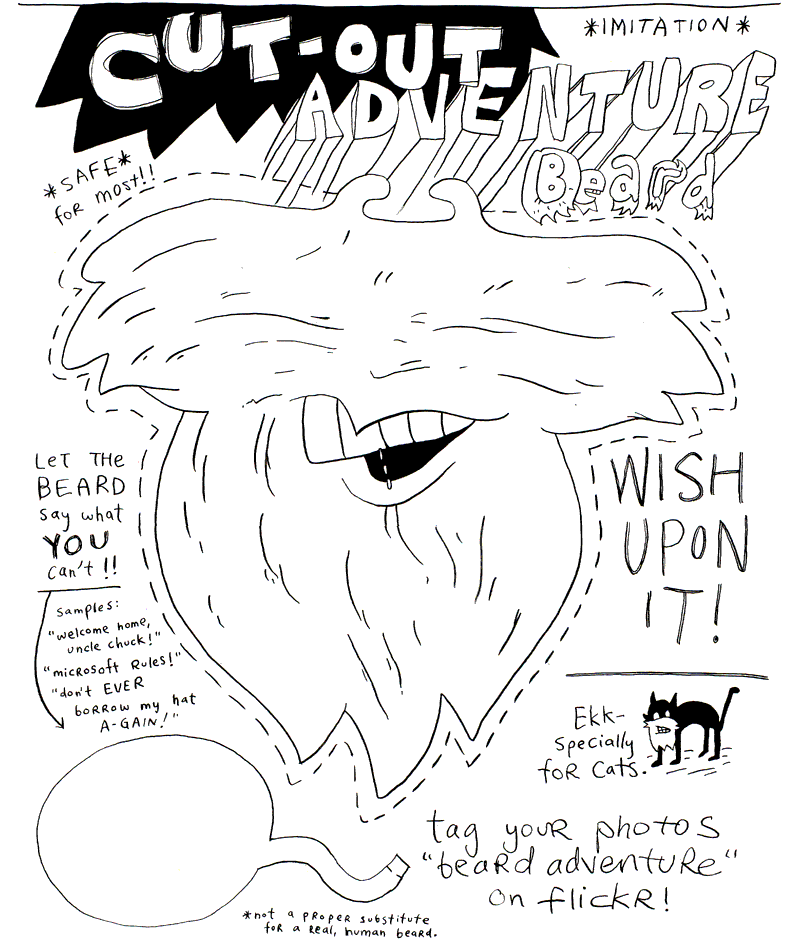 CUT-OUT
*IMITATION*
ADVENTURE
Beard
*SAFE*
for most!!
LET THE
BEARD
say what
YOU
can't!!
samples:
"welcome home,
uncle chuck!"
"microsoft Rules!"
"don't EVER
borrow my hat
A-GAIN!"
WISH
UPON
IT!
Ekk-
specially
for cats.
tag your photos
"beard adventure"
on flickr!
*not a proper substitute
for a real, human beard.